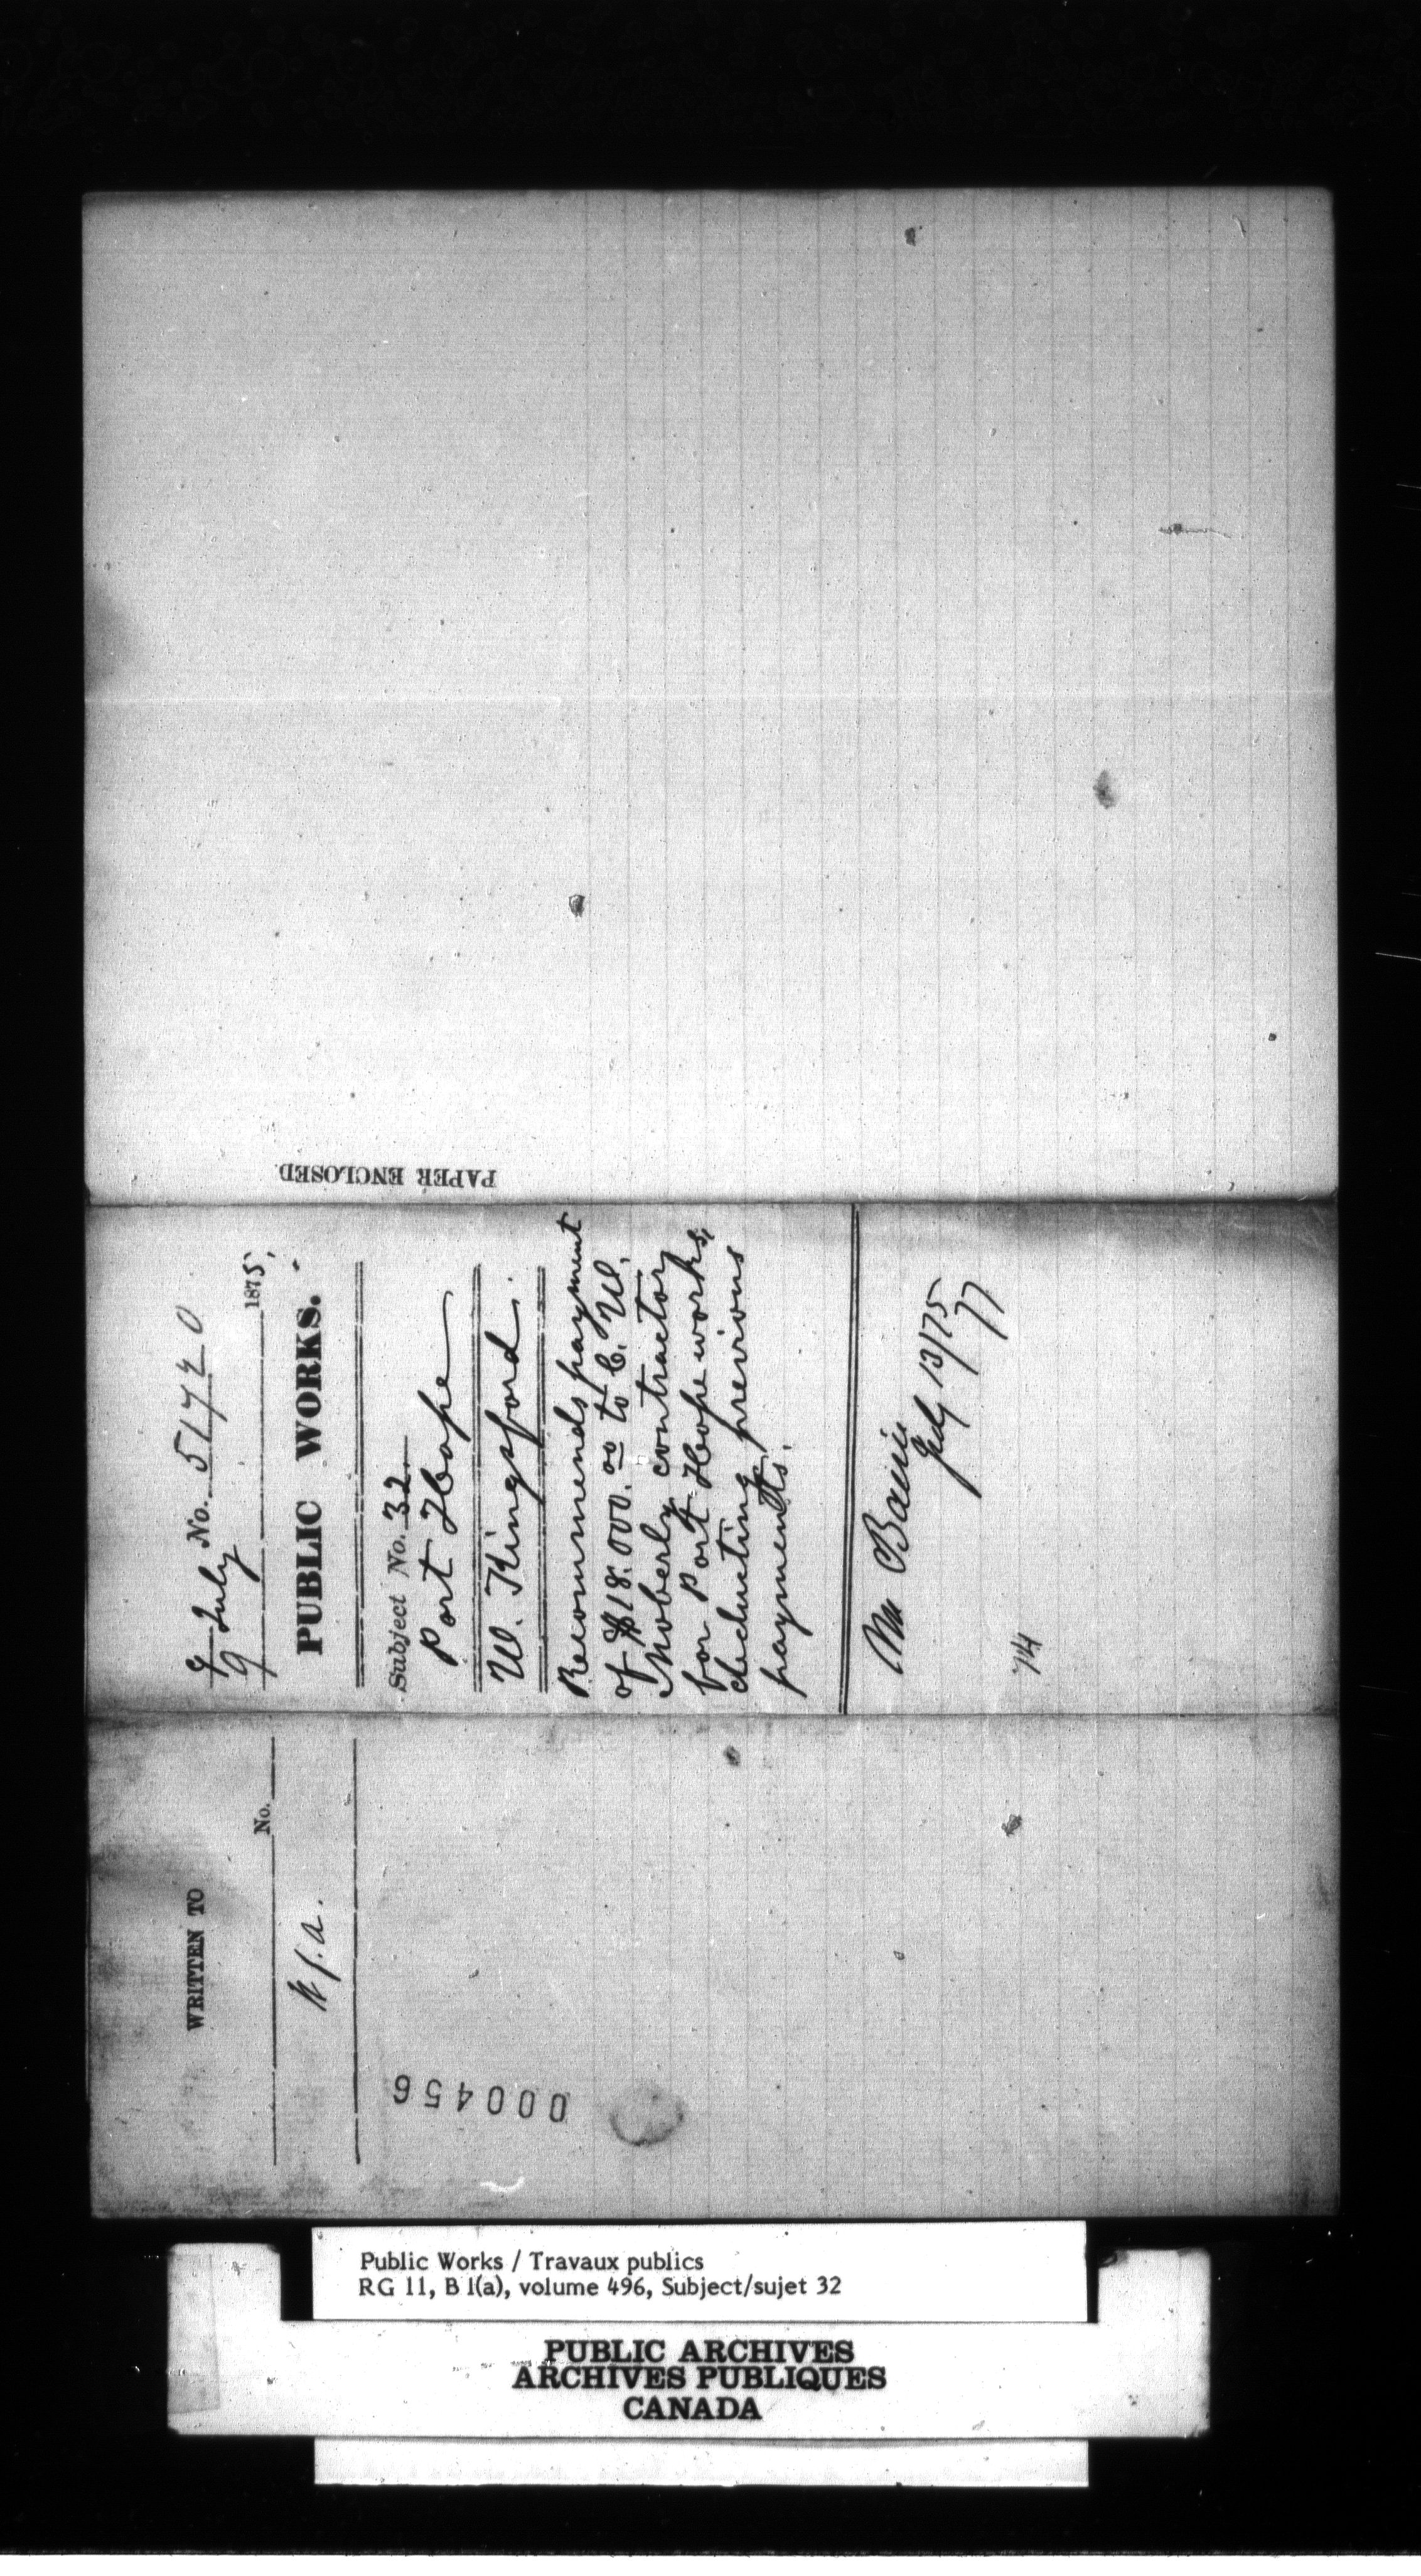 PAPER ENCLOSED
No. 51720
9/9 July 1875,
PUBLIC WORKS.
Subject No. 32
Port Hope
W. Kingsford.
Recommends payment
of $18.000. 00 to C. W.
Moberly contractor
for Port Hope works,
deducting previous
payments.
Mr Bain
July 13/75
77
74
WRITTEN TO
No.
000456
Public Works / Travaux publics
RG 11, B 1(a), volume 496, Subject/sujet 32
PUBLIC ARCHIVES
ARCHIVES PUBLIQUES
CANADA